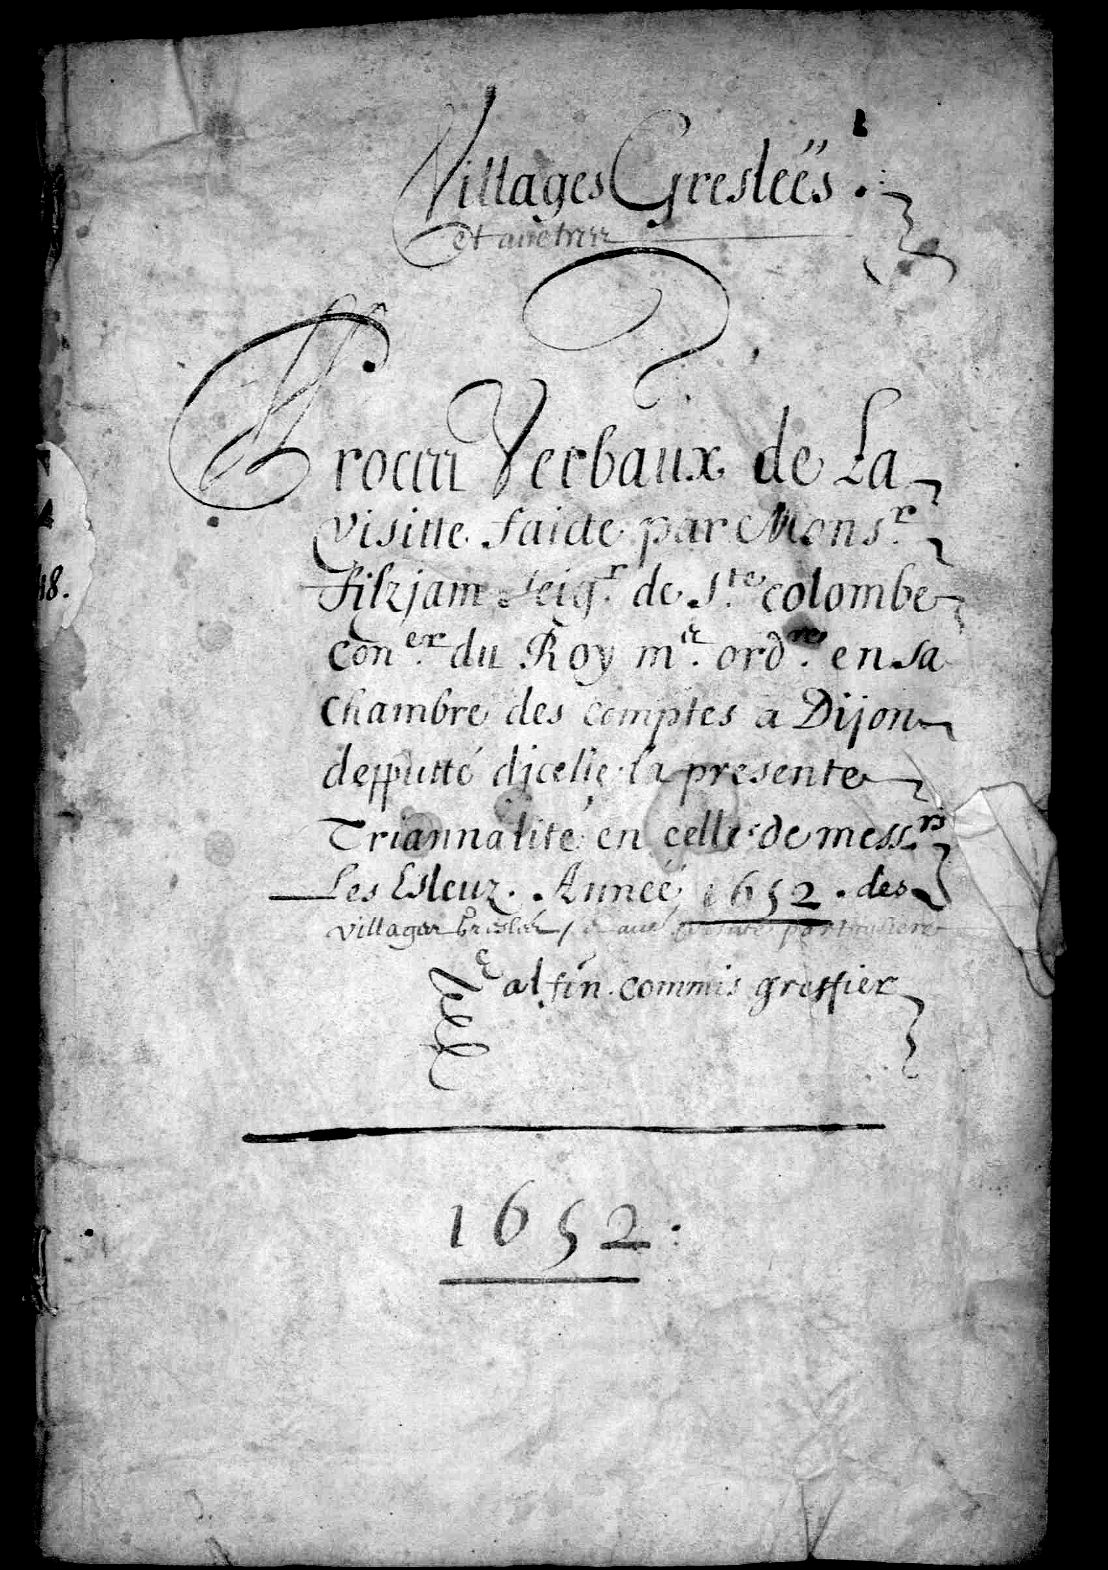 Villages Greslées.
et autres
Proces Verbaux de La
visitte faicte par Monsr
Filzjam Seigr. de Ste colombe
Coner. du Roy me. ordre. en sa
Chambre des comptes a Dijon
depputté dicelle la presente
Triannalité en celle de messrs
Les Esleuz. Anneé 1652. des
villages Greslés / particuliere
al fin commis greffier
1652:
48.